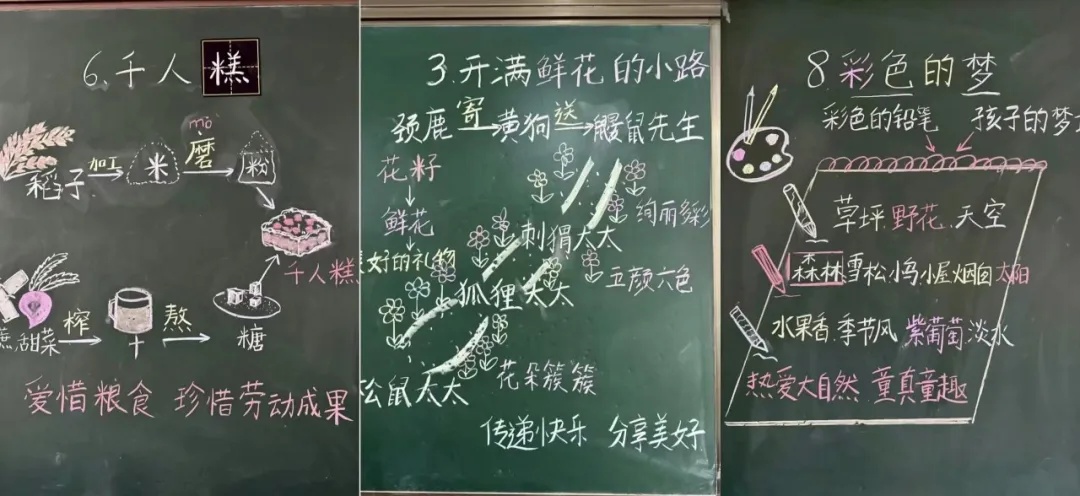 6.千人糕
mó
稻子 加工 米 磨 粉
千人糕
蔗,甜菜 榨 熬 糖
爱惜粮食 珍惜劳动成果
3.开满鲜花的小路
颈鹿 寄 黄狗 送 鼹鼠先生
花籽
鲜花
绚丽多彩
刺猬太太
美好的礼物
五颜六色
狐狸太太
花朵簇簇
松鼠太太
传递快乐 分享美好
8.彩色的梦
彩色的铅笔 孩子的梦
草坪.野花.天空
森林 雪松.小鸟.小屋.烟囱.太阳
水果香.季节风 紫葡萄.淡水
热爱大自然 童真童趣